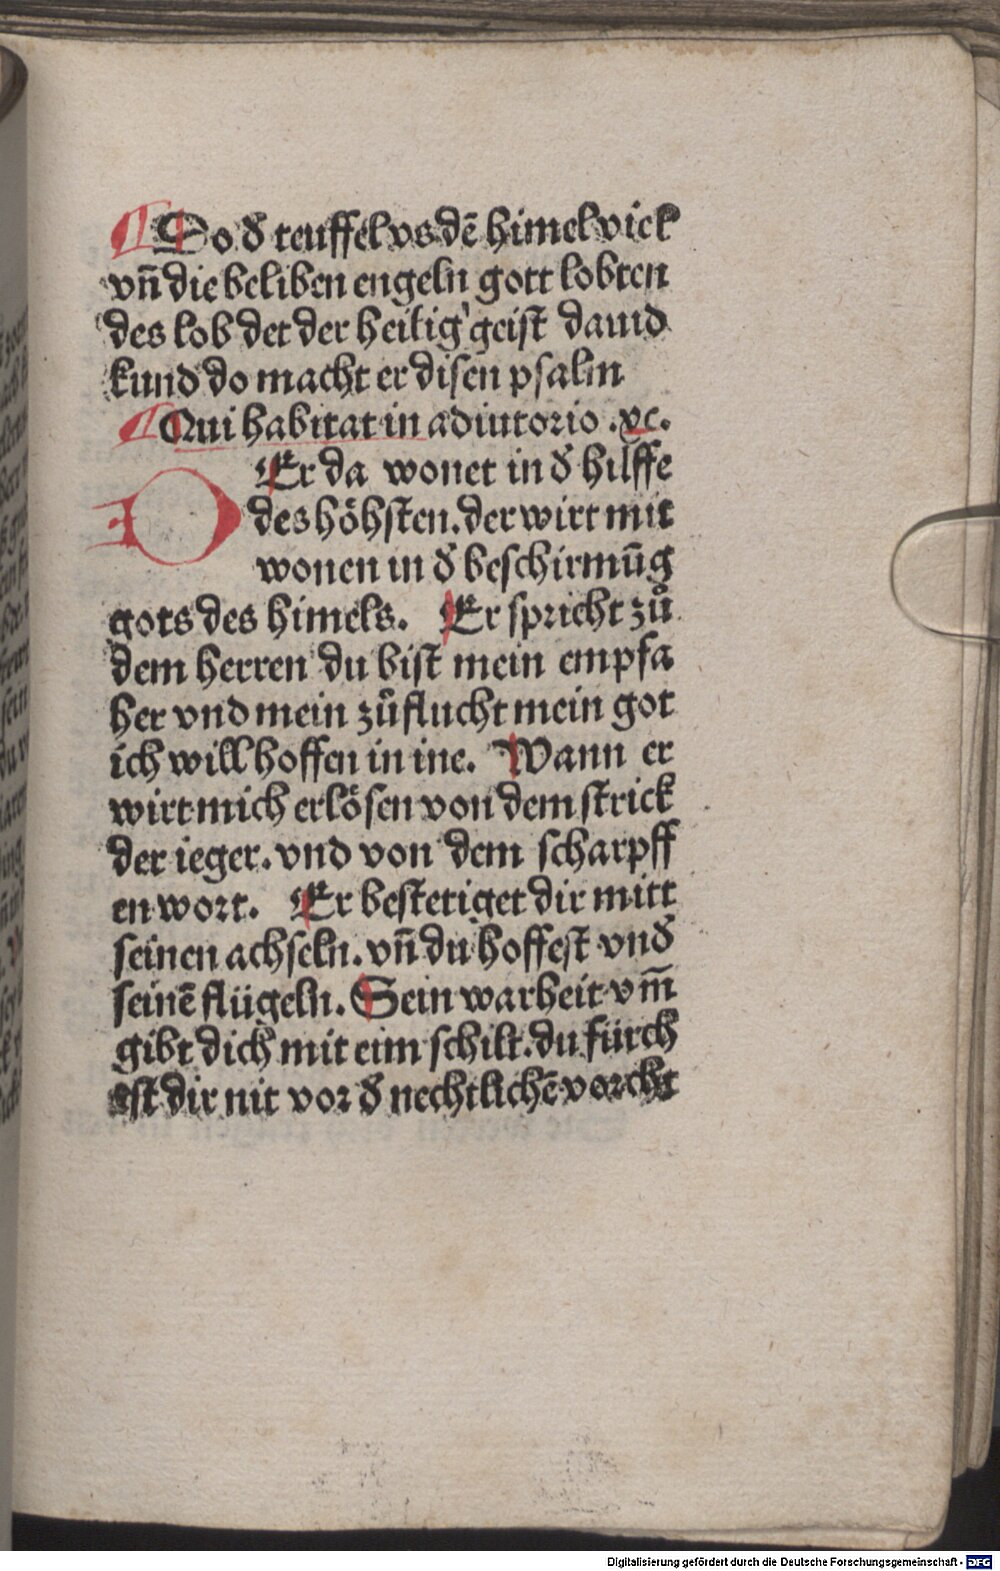 ¶ So đ teuffel vs dē himel vick
vn̄ die beliben engeln gott lobten
des lob det der heilig' geist dauid
kund do macht er disen psalm
¶ Qui habitat in adiutorio .xc.
D Er da wonet in đ hilffe
des höhsten. der wirt mit
wonen in đ beschirmūg
gots des himels. Er spricht zů
dem herren du bist mein empfa
her vnd mein zůflucht mein got
ich will hoffen in ine. Wann er
wirt mich erlösen von dem strick
der ieger. vnd von dem scharpff
en wort. Er bestetiget dir mitt
seinen achseln. vn̄ du hoffest vnđ
seinē flügeln. Sein warheit vm̄
gibt dich mit eim schilt. du fürch
est dir nit vor đ nechtlichē vorcht
Digitalisierung gefördert durch die Deutsche Forschungsgemeinschaft - DFG